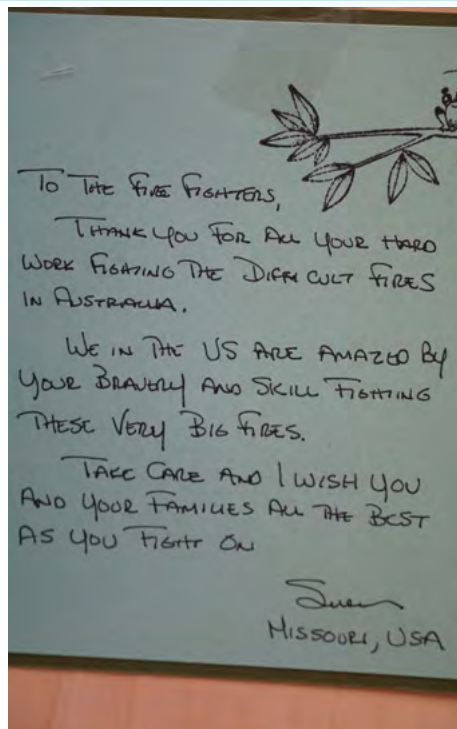 To The Fire Fighters,
Thank you for all your hard
work fighting the difficult fires
in Australia.
We in the US are amazed by
your bravery and skill fighting
these very big fires.
Take care and I wish you
and your families all the best
as you fight on
Missouri, USA